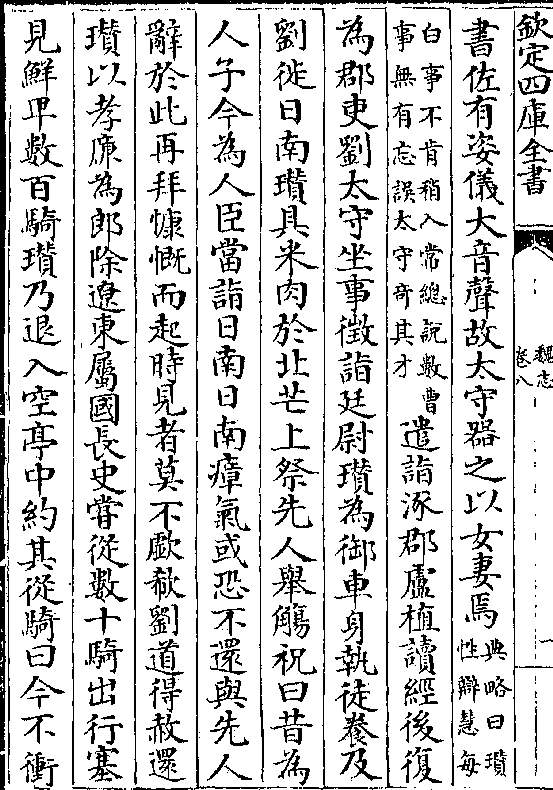 欽定四庫全書
魏志
卷八
一
書佐有姿儀大音聲故太守器之以女妻焉典略曰瓚性辯慧每
白事不肯稍入常總說數曹事無有忘誤太守奇其才遣詣涿郡盧植讀經後復
為郡吏劉太守坐事徵詣廷尉瓚為御車身執徒養及
劉徙日南瓚具米肉於北芒上祭先人舉觴祝曰昔為
人子今為人臣當詣日南日南瘴氣或恐不還與先人
辭於此再拜慷慨而起時見者莫不歔欷劉道得赦還
瓚以孝廉為郎除遼東屬國長史甞從數十騎出行塞
見鮮卑數百騎瓚乃退入空亭中約其從騎曰今不衝